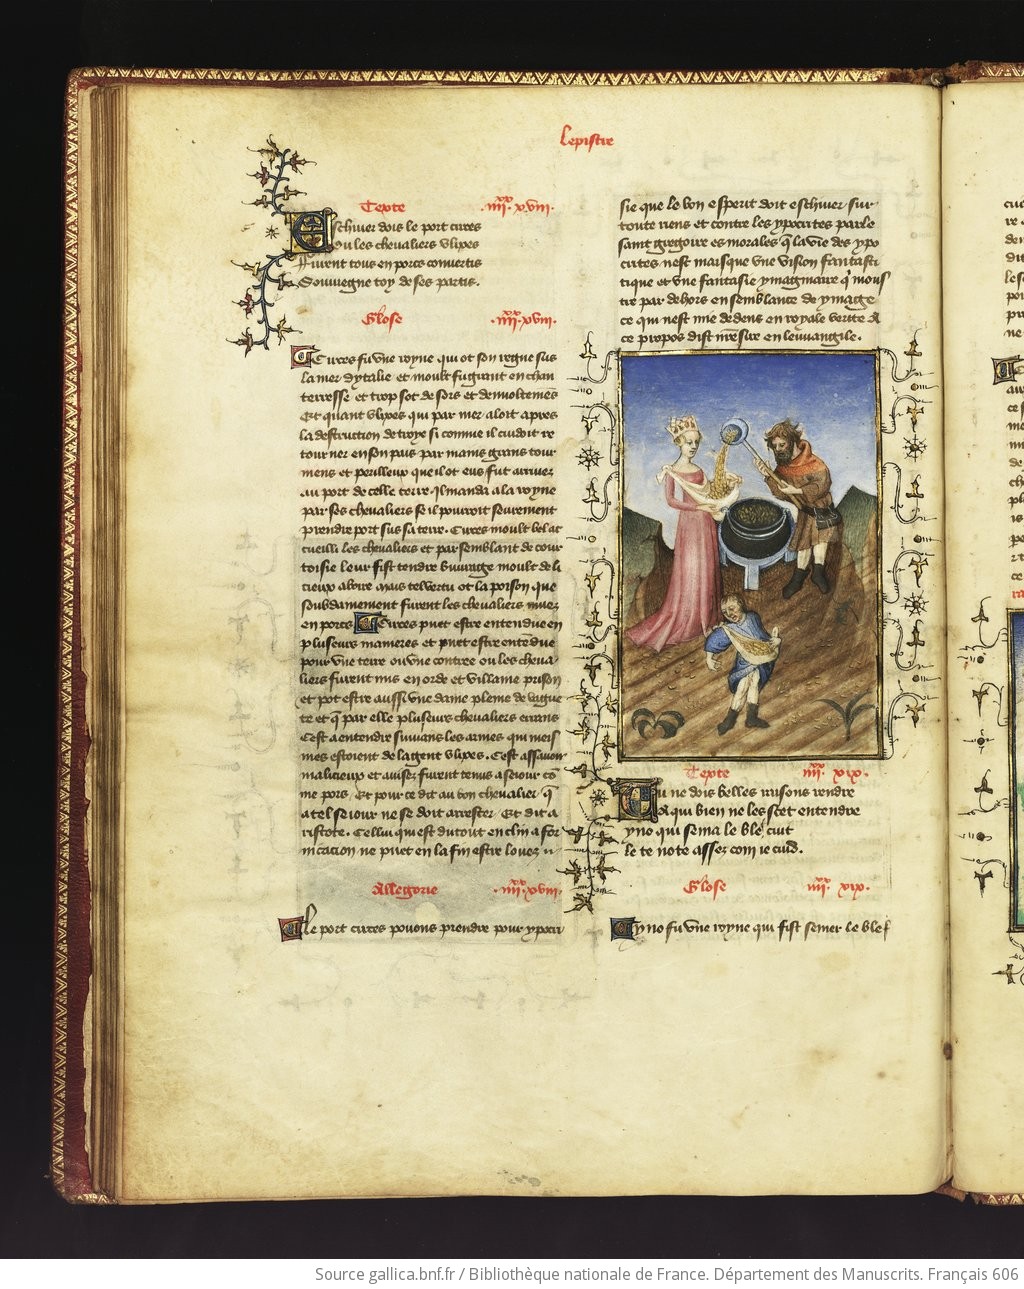 Lepistre
Texte .iiii.xx xviii.
Eschiuer dois le port circes
Ou les cheualiers vlixes
Furent tous en porcs conuertis
Souuiegne toy de ses partis.
Glose .iiii.xx xviii.
Circes fu vne royne qui ot son regne sus
la mer dytalie et moult fu grant enchan
terresse et trop sot de sors et de
Et quant vlixes qui par mer aloit apres
la destruction de troye si comme il cuidoit re
tourner en son pais par mains grans tour
mens et perilleux que il ot eus fut arriuer
au port de celle terre. Il manda a la royne
par ses cheualiers se il pourroit seurement
prendre port sus sa terre. Circes moult bel ac
cueilli les cheualiers et par semblant de cour
toisie leur fist tendre buurage moult deli
cieux a boire mais tel vertu ot la poison que
soubdainement furent les cheualiers muez
en porcs Circes puet estre entendue en
pluseurs manieres et puet estre entendue
pour vne terre ou vne contree ou les cheua
liers furent mis en orde et villaine prison
et pot estre aussi vne dame pleine de vague
te et que par elle pluseurs cheualiers errans
Cest a entendre suiuans les armes qui meis
mes estoient de la gent vlixes. Cest assauoir
malicieux et auisez furent tenus a seiour com
me pors. Et pour ce dit au bon cheualier que
a tel seiour ne se doit arrester. Et dit a
ristote. Cellui qui est du tout enclin a for
nicacion ne puet en la fin estre louez
Allegorie .iiii.xx xviii.
Le port circes pouons prendre pour ypocri
sie que le bon esperit doit eschiuer sur
toute riens et contre les ypocrites parle
saint gregoire es morales que la vie des ypo
crites nest mais que vne vision fantasti
tique et vne fantasie ymaginaire qui mous
tre par dehors en semblance de ymage
ce qui nest mie dedens en royale verite A
ce propos dist nostre sire en leuuangile.
Texte iiii.xx xix.
Tu ne dois belles raisons rendre
A qui bien ne les scet entendre
yno qui sema le ble cuit
le te note assez com ie cuid.
Glose iiii.xx xix.
yno fu vne royne qui fist semer le blef
Source gallica.bnf.fr / Bibliothèque nationale de France. Département des Manuscrits. Français 606